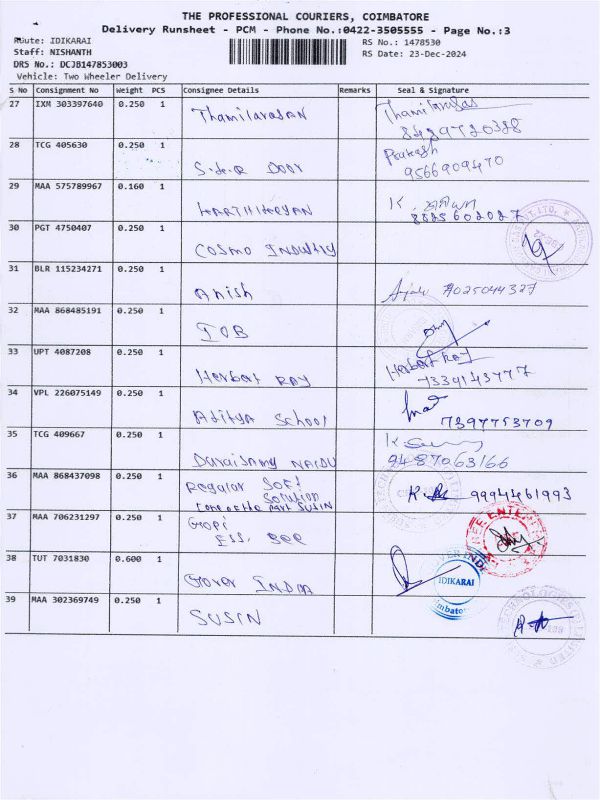 THE PROFESSIONAL COURIERS, COIMBATORE
Delivery Runsheet - PCM - Phone No.:0422-3505555 - Page No.:3
Route: IDIKARAI RS No.: 1478530
Staff: NISHANTH RS Date: 23-Dec-2024
DRS No.: DCJB147853003
Vehicle: Two Wheeler Delivery
S No Consignment No Weight PCS Consignee Details Remarks Seal & Signature
27 IXM 303397640 0.250 1 Thamilarasan Thamilarasan
8429720388
28 TCG 405630 0.250 1 Side Door Prakash
9566909470
29 MAA 575789967 0.160 1 KARTHIKEYAN K
8825602027
30 PGT 4750407 0.250 1 COSMO INDUSTRY
31 BLR 115234271 0.250 1 Anish 7025044327
32 MAA 868485191 0.250 1 IOB
33 UPT 4087208 0.250 1 Herbert Ray Herbert Ray
7339143777
34 VPL 226075149 0.250 1 Aditya School
7397753709
35 TCG 409667 0.250 1 Duraisamy NAIDU K
9487063166
36 MAA 868437098 0.250 1 Regular Soft
Solution
care of the part SUSIN 9994461993
37 MAA 706231297 0.250 1 Gopi
ESS BEE
38 TUT 7031830 0.600 1 Grover INDIA IDIKARAI
39 MAA 302369749 0.250 1 SUSIN